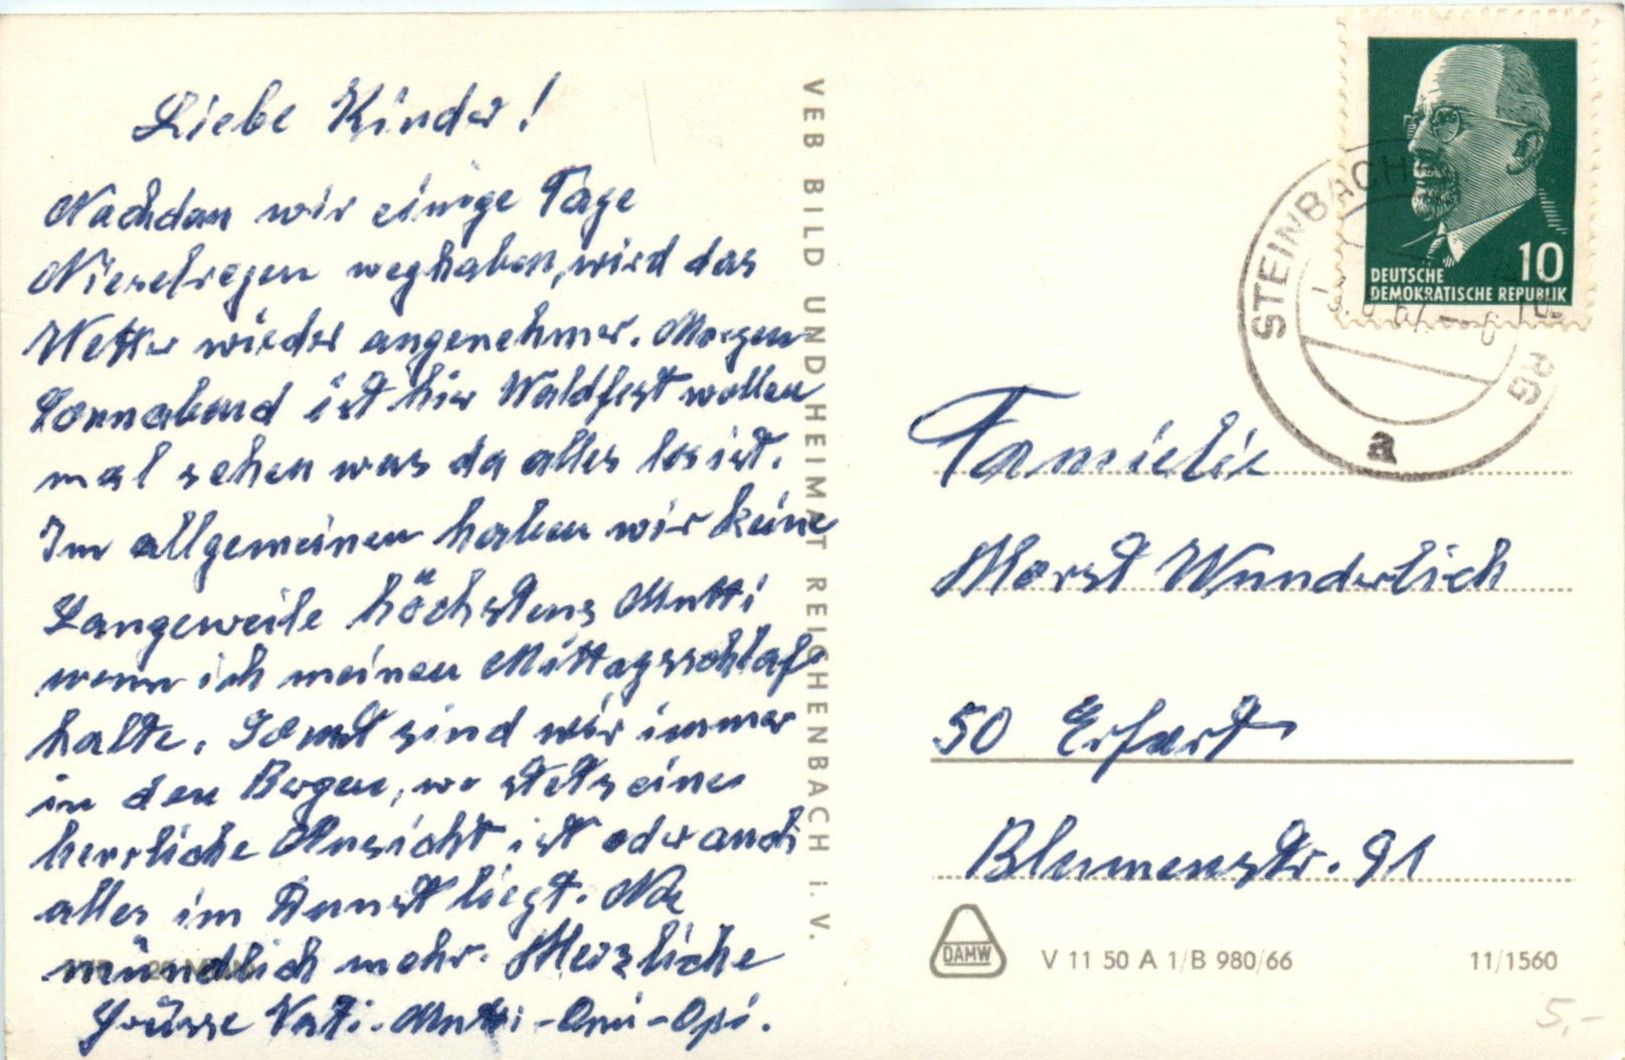 Liebe Kinder!
Nachdem wir einige Tage
Nieselregen weghaben, wird das
Wetter wieder angenehmer. Morgen
Sonnabend ist hier Waldfest wollen
mal sehen was da alles los ist.
Im allgemeinen haben wir keine
Langeweile höchstens Mutti
wenn ich meinen Mittagsschlaf
halte. Sonst sind wir immer
in den Bergen, wo stets eine
herrliche Ansicht ist oder auch
alles im Dunst liegt. Na
mündlich mehr. Herzliche
Grüsse Vati - Mutti - Omi - Opi.
VEB BILD UND HEIMAT REICHENBACH i. V.
10
DEUTSCHE
DEMOKRATISCHE REPUBLIK
STEINBACH
RG
a
Familie
Horst Wunderlich
50 Erfurt
Blumenstr. 91
DAMW
V 11 50 A 1/B 980/66
11/1560
5,-